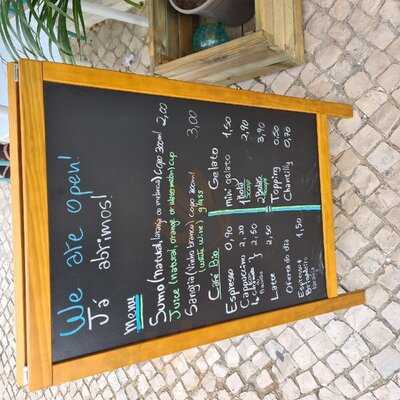 We are open!
Já abrimos!
Menu
Sumo (natural, laranja ou melancia) copo 300ml 2,00
Juice (natural, orange or watermelon) cup
Sangria (vinho branco) copo 300ml 3,00
(white wine) glass
Café Bio
Espresso 0,90
Cappuccino 2,20
2,50
Latte 2,50
Oferta do dia
Espresso + 1,50
Gelato
mini gelato 1,50
1 Bola 2,90
2 Bolas 3,90
Topping 0,50
Chantilly 0,70